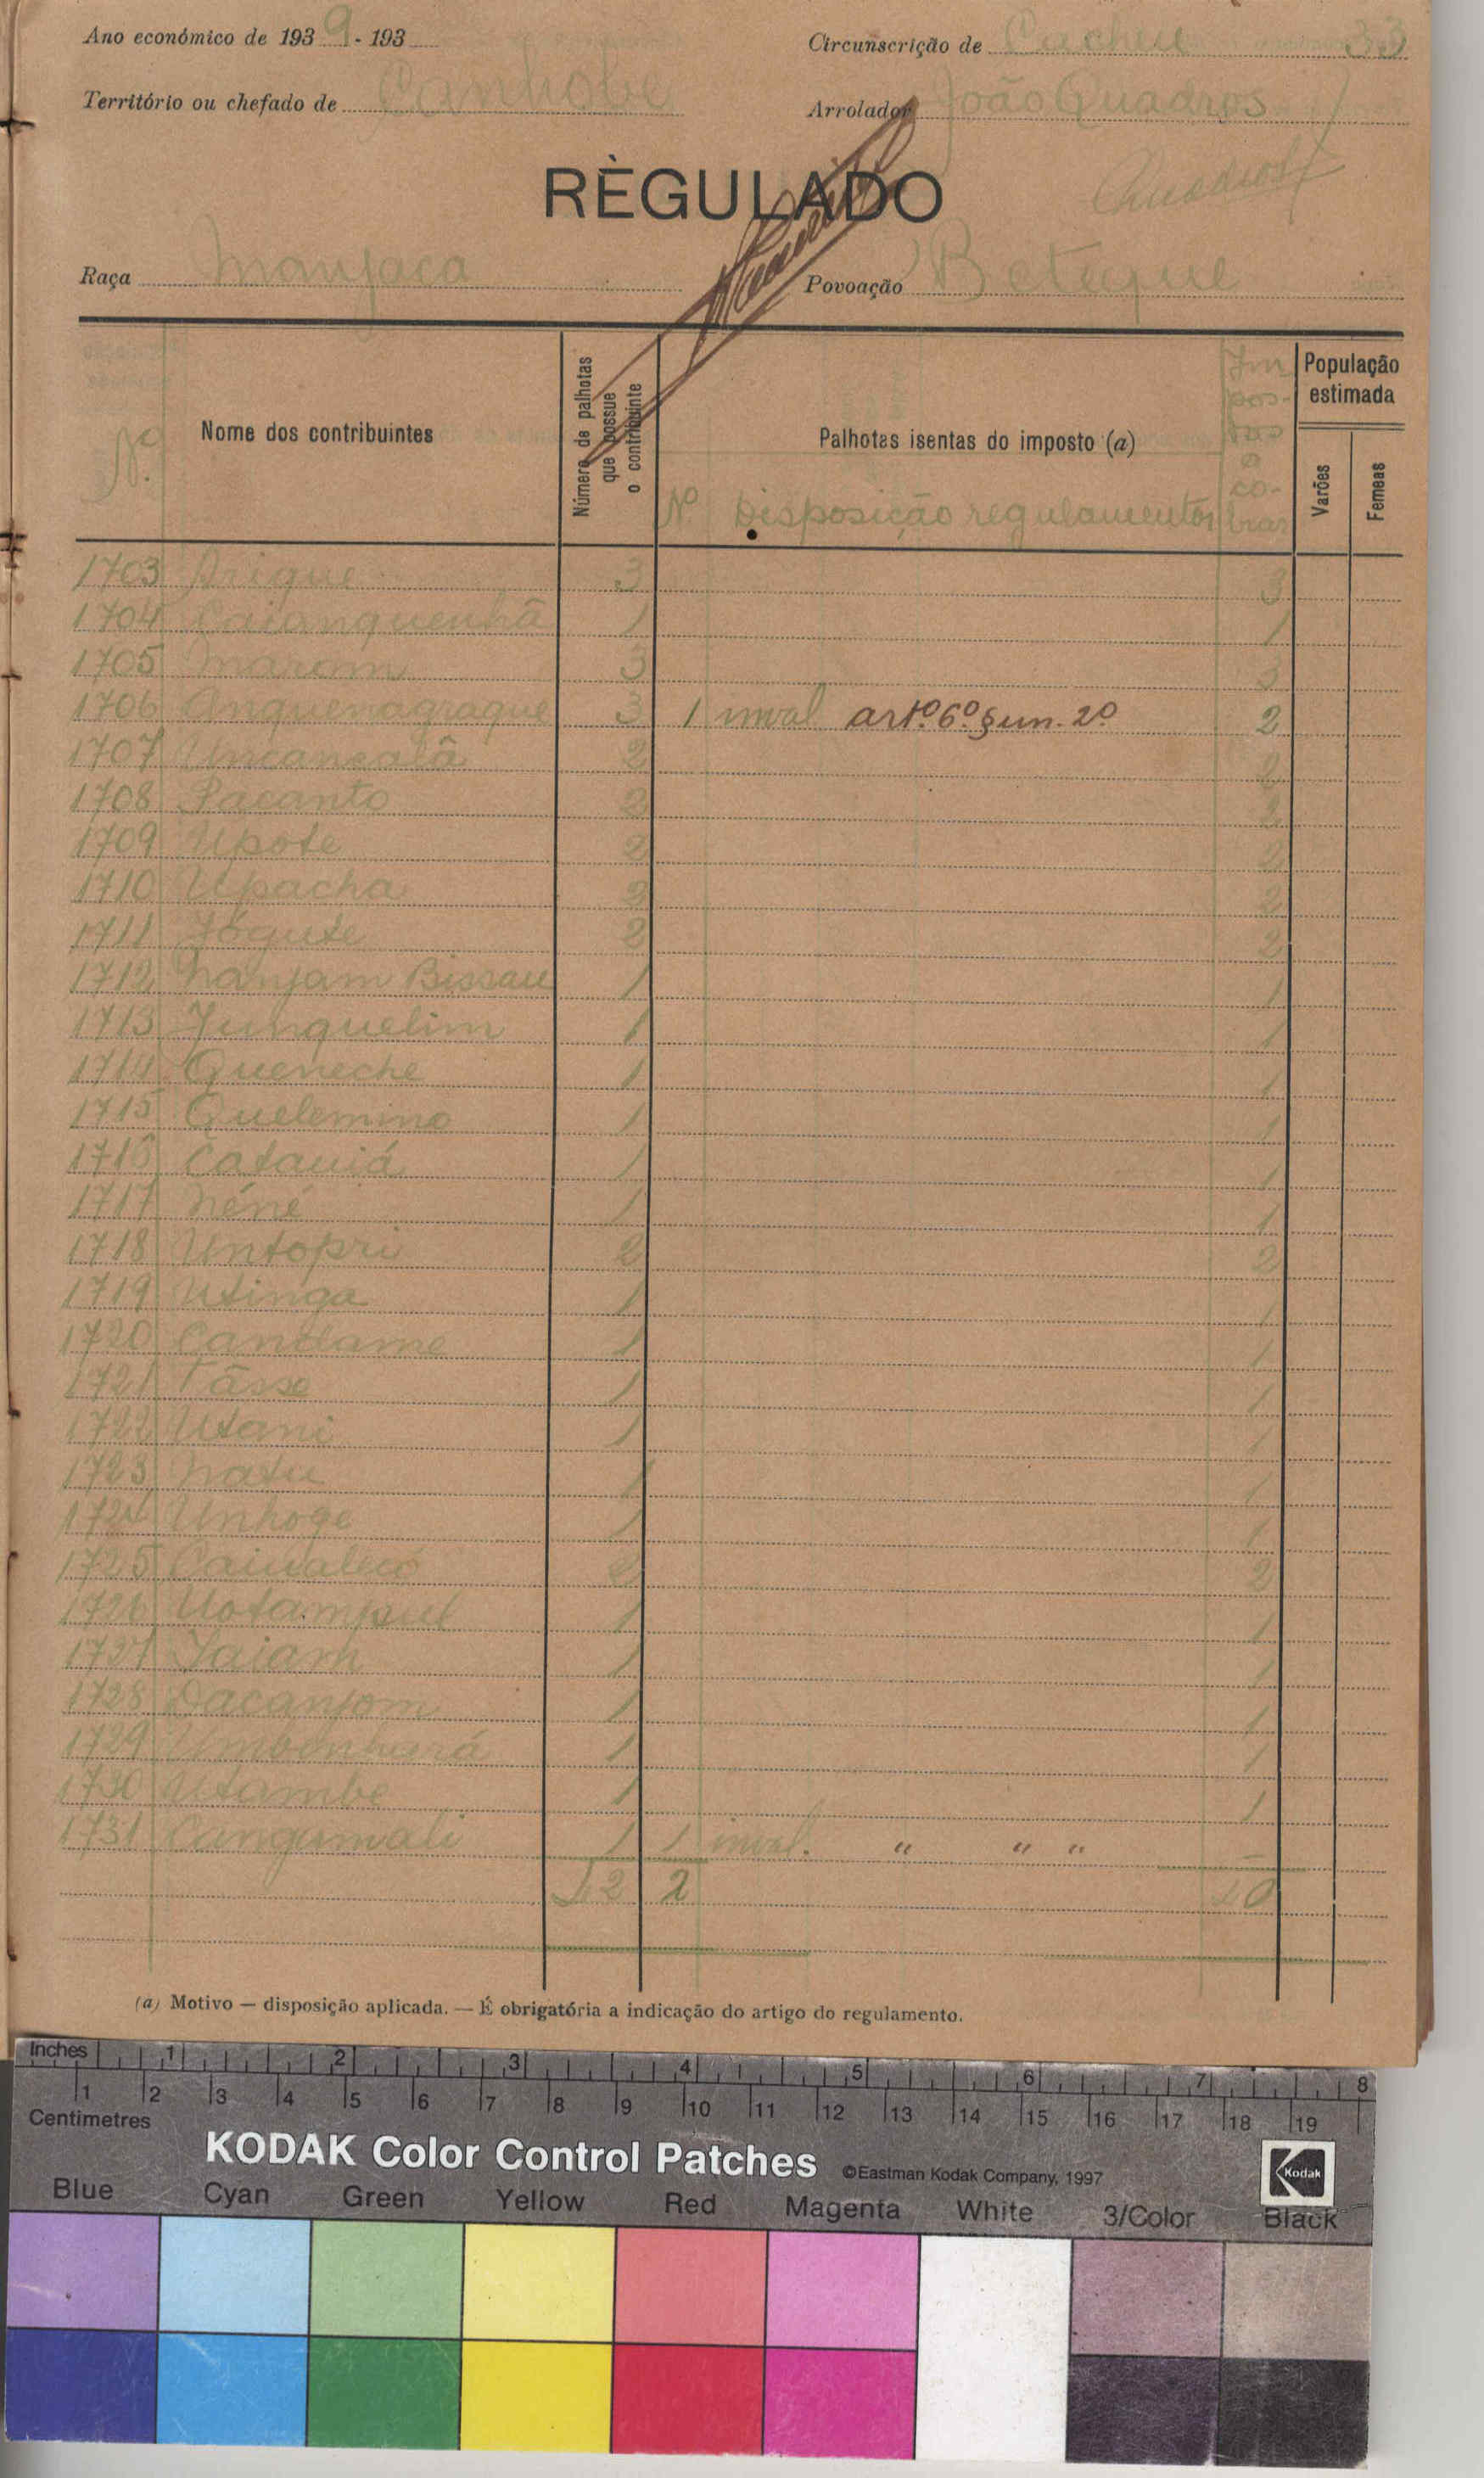 Ano económico de 1939-193
Circunscrição de Cacheu 33
Território ou chefado de Canhobe
Arrolador João Quadros
RÈGULADO
Quadros
Raça Manjaca
Povoação Beteque
Nº
Nome dos contribuintes
Número de palhotas que possue o contribuinte
Palhotas isentas do imposto (a)
Nº Disposição regulamentos
Im pos- tos a co- brar
População estimada
Varões
Femeas
1703 3 3
1704 Caianquenhã 1 1
1705 Marom 3 3
1706 Anquenagraque 3 1 inval artº. 6º. § un. 2º 2
1707 2 2
1708 Pacanto 2 2
1709 Upote 2 2
1710 Upacha 2 2
1711 Jógute 2 2
1712 Nanjam Bissau 1 1
1713 Junquelim 1 1
1714 Queneche 1 1
1715 Quelemino 1 1
1716 Catauiá 1 1
1717 Néné 1 1
1718 Untopri 2 2
1719 Utinga 1 1
1720 Candame 1 1
1721 Tãsso 1 1
1722 Utani 1 1
1723 Natu 1 1
1724 Unhoge 1 1
1725 2 2
1726 Uotampul 1 1
1727 Jaiam 1 1
1728 Dacanjom 1 1
1729 1 1
1730 Utambe 1 1
1731 Cangumali 1 1 inval. " " " –
42 2 40
(a) Motivo — disposição aplicada. — É obrigatória a indicação do artigo do regulamento.
Inches 1 2 3 4 5 6 7 8
1 2 3 4 5 6 7 8 9 10 11 12 13 14 15 16 17 18 19
Centimetres
KODAK Color Control Patches ©Eastman Kodak Company, 1997 Kodak
Blue Cyan Green Yellow Red Magenta White 3/Color Black